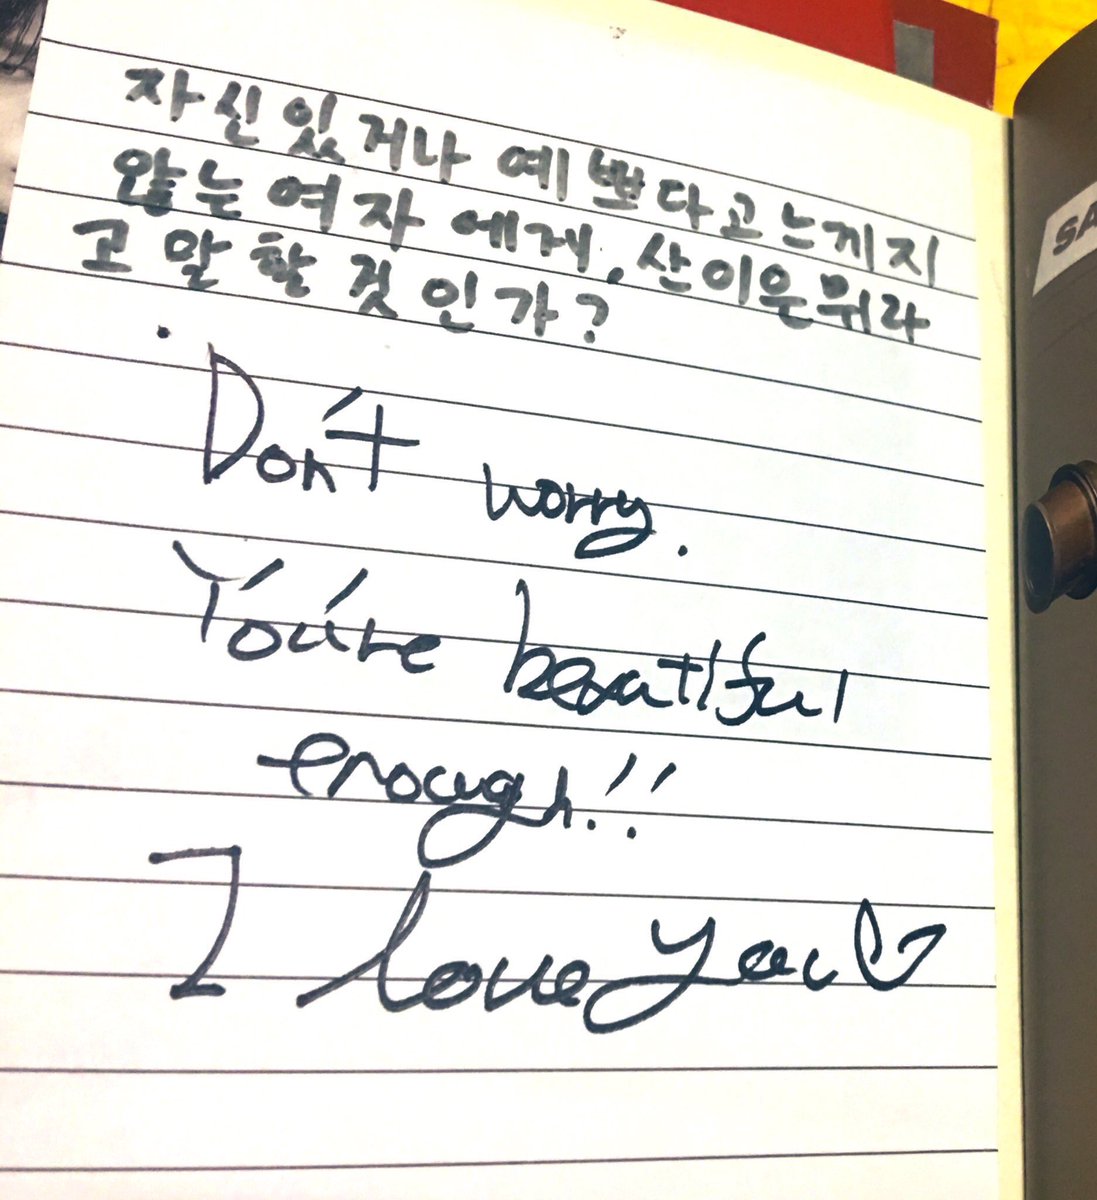 자신있거나 예쁘다고 느끼지
않는 여자 에게, 산이은 뭐라
고 말할 것인가?
Don't worry.
You're beautiful
enough!!
I love you♡
SA